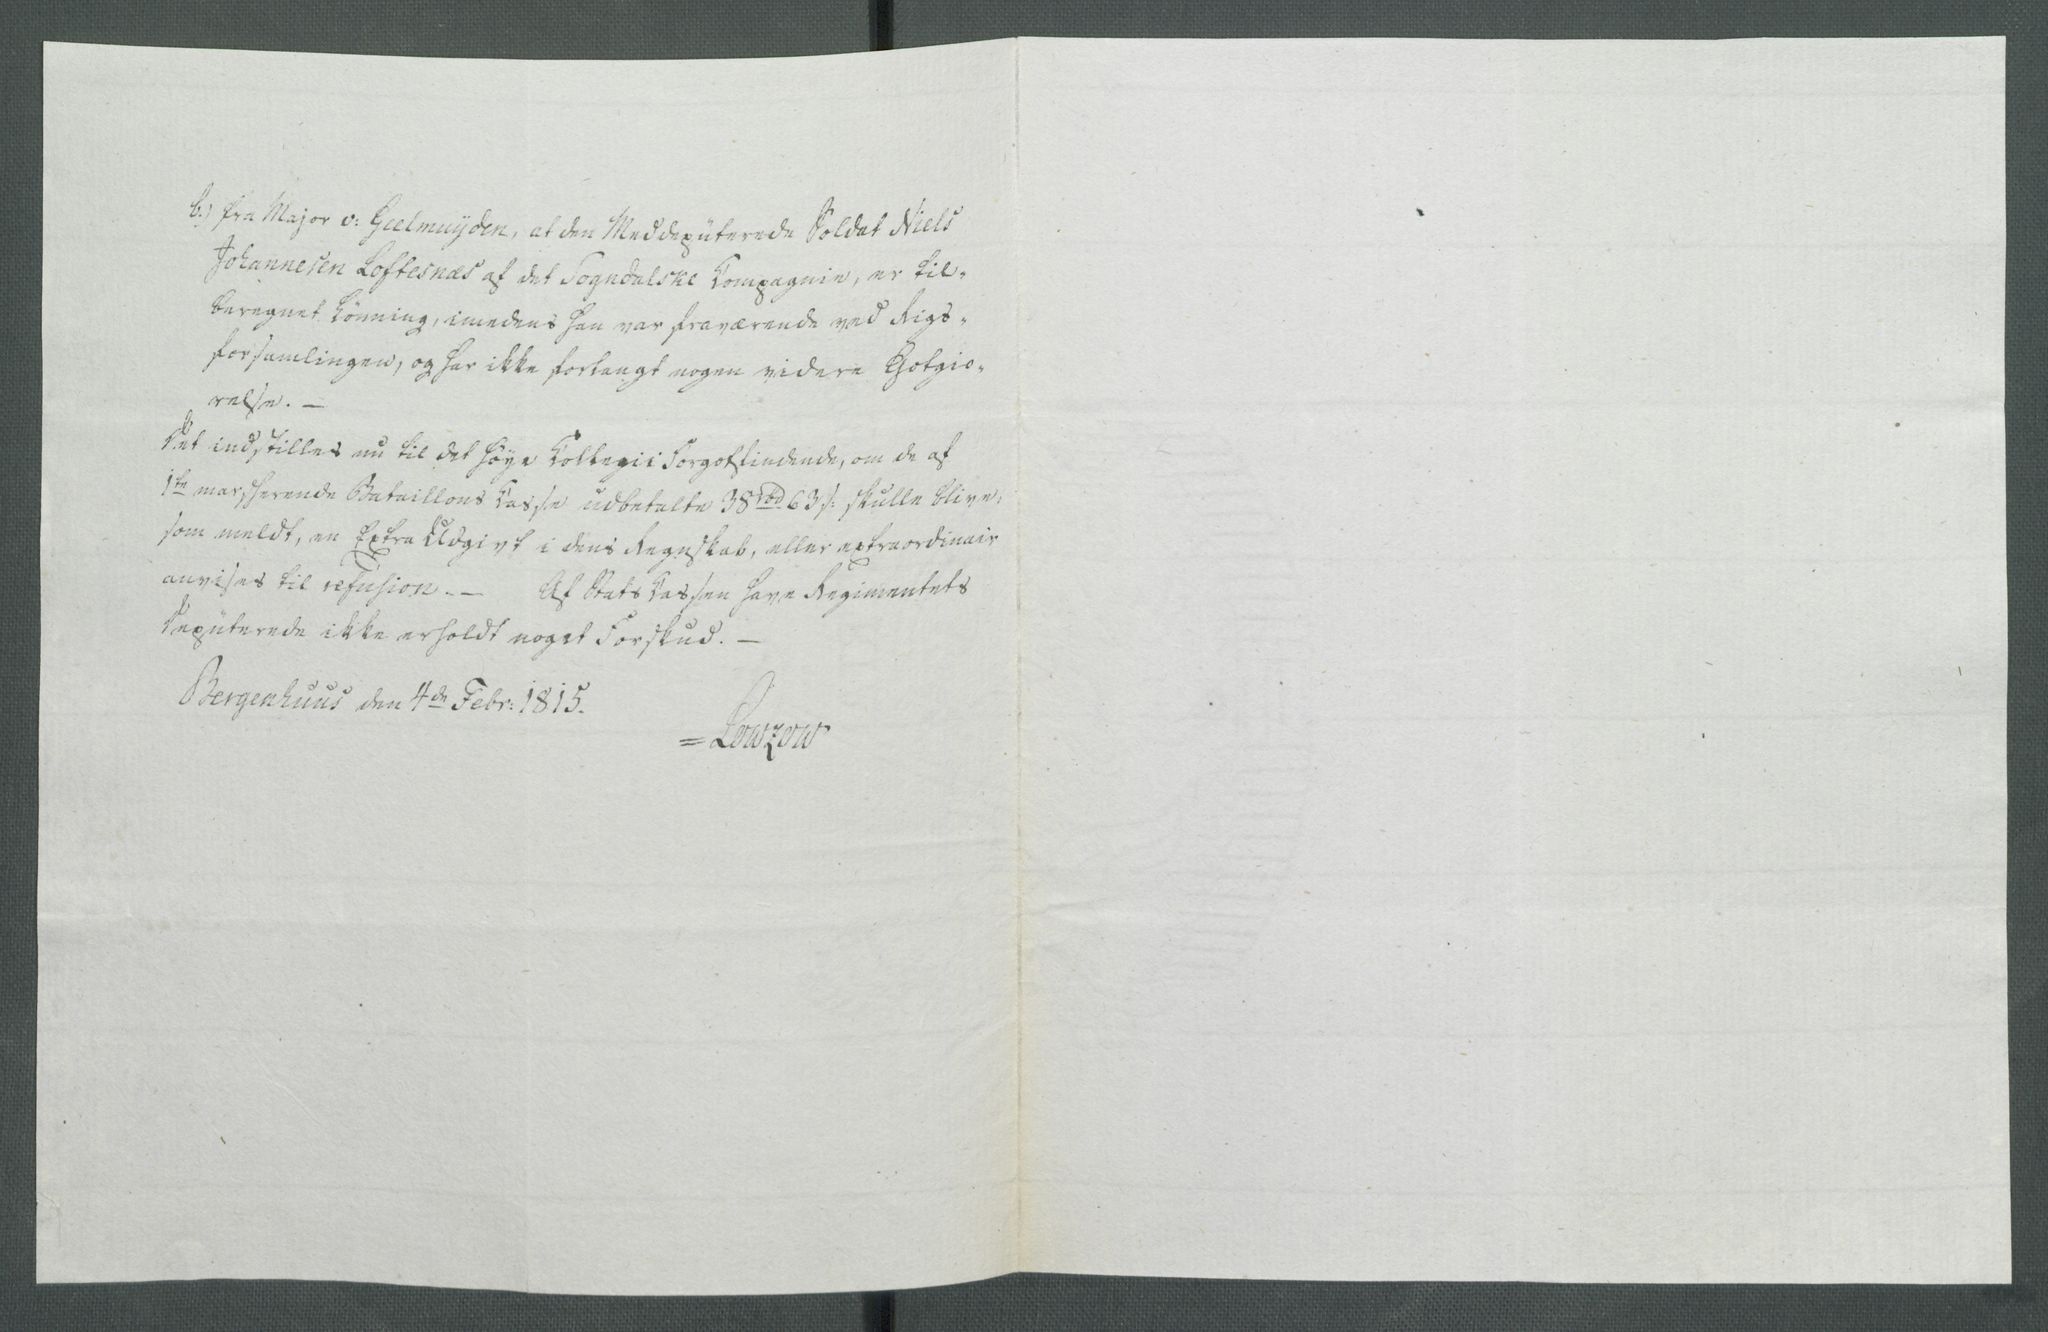 b.) fra Major v: Gielmuyden, at den Meddeputerede Soldat Niels
Johannesen Loftesnæs af det Sogndalske Compagnie, er til-
beregnet Lönning, imedens han var fraværende ved Rigs-
forsamlingen, og har ikke forlangt nogen videre Godtgiö-
relse. —
Det indstilles nu til det høye Collegii Forgotfindende, om de af
1te marscherende Bataillons Casse udbetalte 38 rbd 63 s: skulle blive,
som meldt, en Extra Udgivt i dens Regnskab, eller extraordinair
anvises til refusion. — Af Stats Cassen have Regimentets
Deputerede ikke erholdt noget Forskud. —
Bergenhuus den 4de Febr: 1815.
= Lowzow